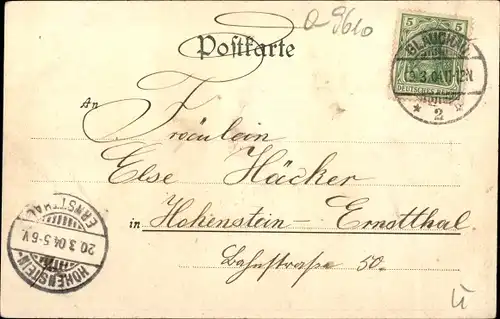 a 9610
Postkarte
5 5
GLAUCHAU
.3.04.11-12N
DEUTSCHES REICH
* 2
An
Fräulein
Else Häcker
in Hohenstein-Ernstthal
Bahnstrasse 50.
HOHENSTEIN-ERNSTTHAL
20.3.04.5-6V.